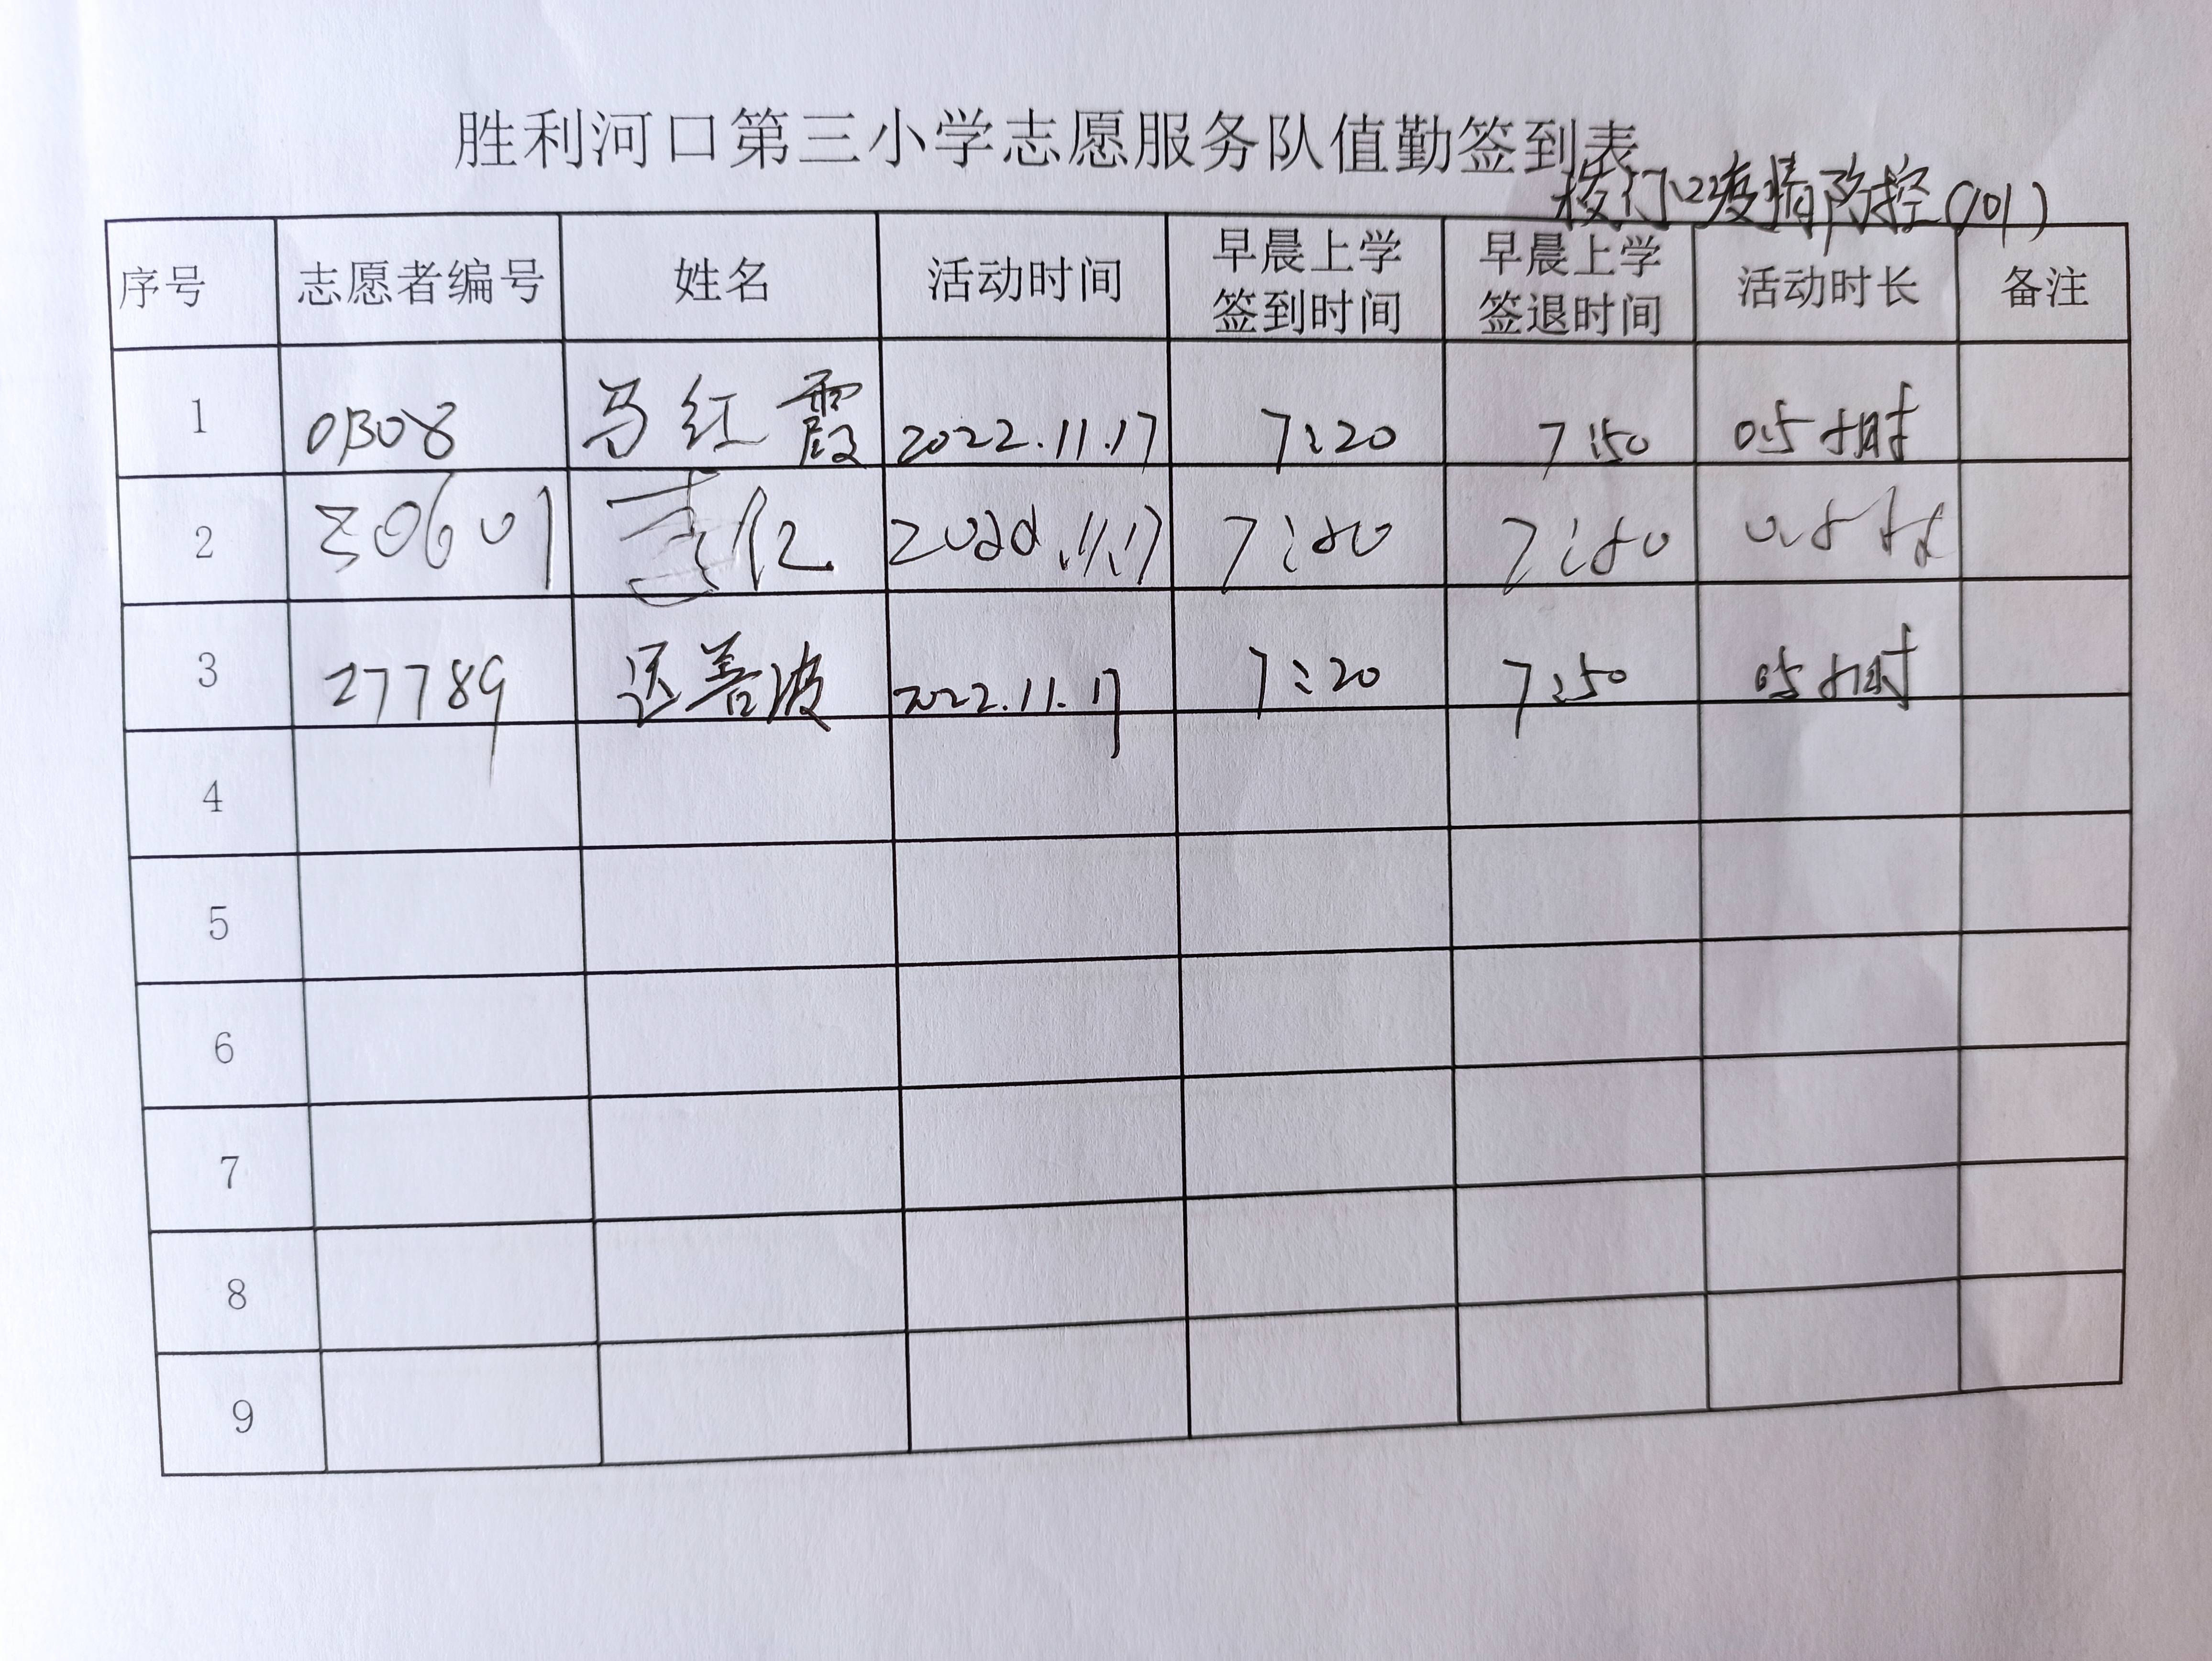 胜利河口第三小学志愿服务队值勤签到表
校门口疫情防控(101)
序号 志愿者编号 姓名 活动时间 早晨上学签到时间 早晨上学签退时间 活动时长 备注
1 01308 马红霞 2022.11.17 7:20 7:50 0.5小时
2 30601 2022.11.17 7:50 0.5小时
3 27789 迟善波 2022.11.17 7:20 7:50 0.5小时
4
5
6
7
8
9